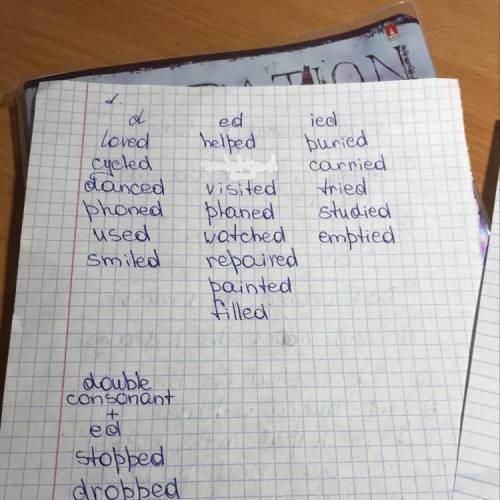 d.
d ed ied
loved helped buried
cycled carried
danced visited tried
phoned planed studied
used watched emptied
smiled repaired
painted
filled
double
consonant
+
ed
stopped
dropped